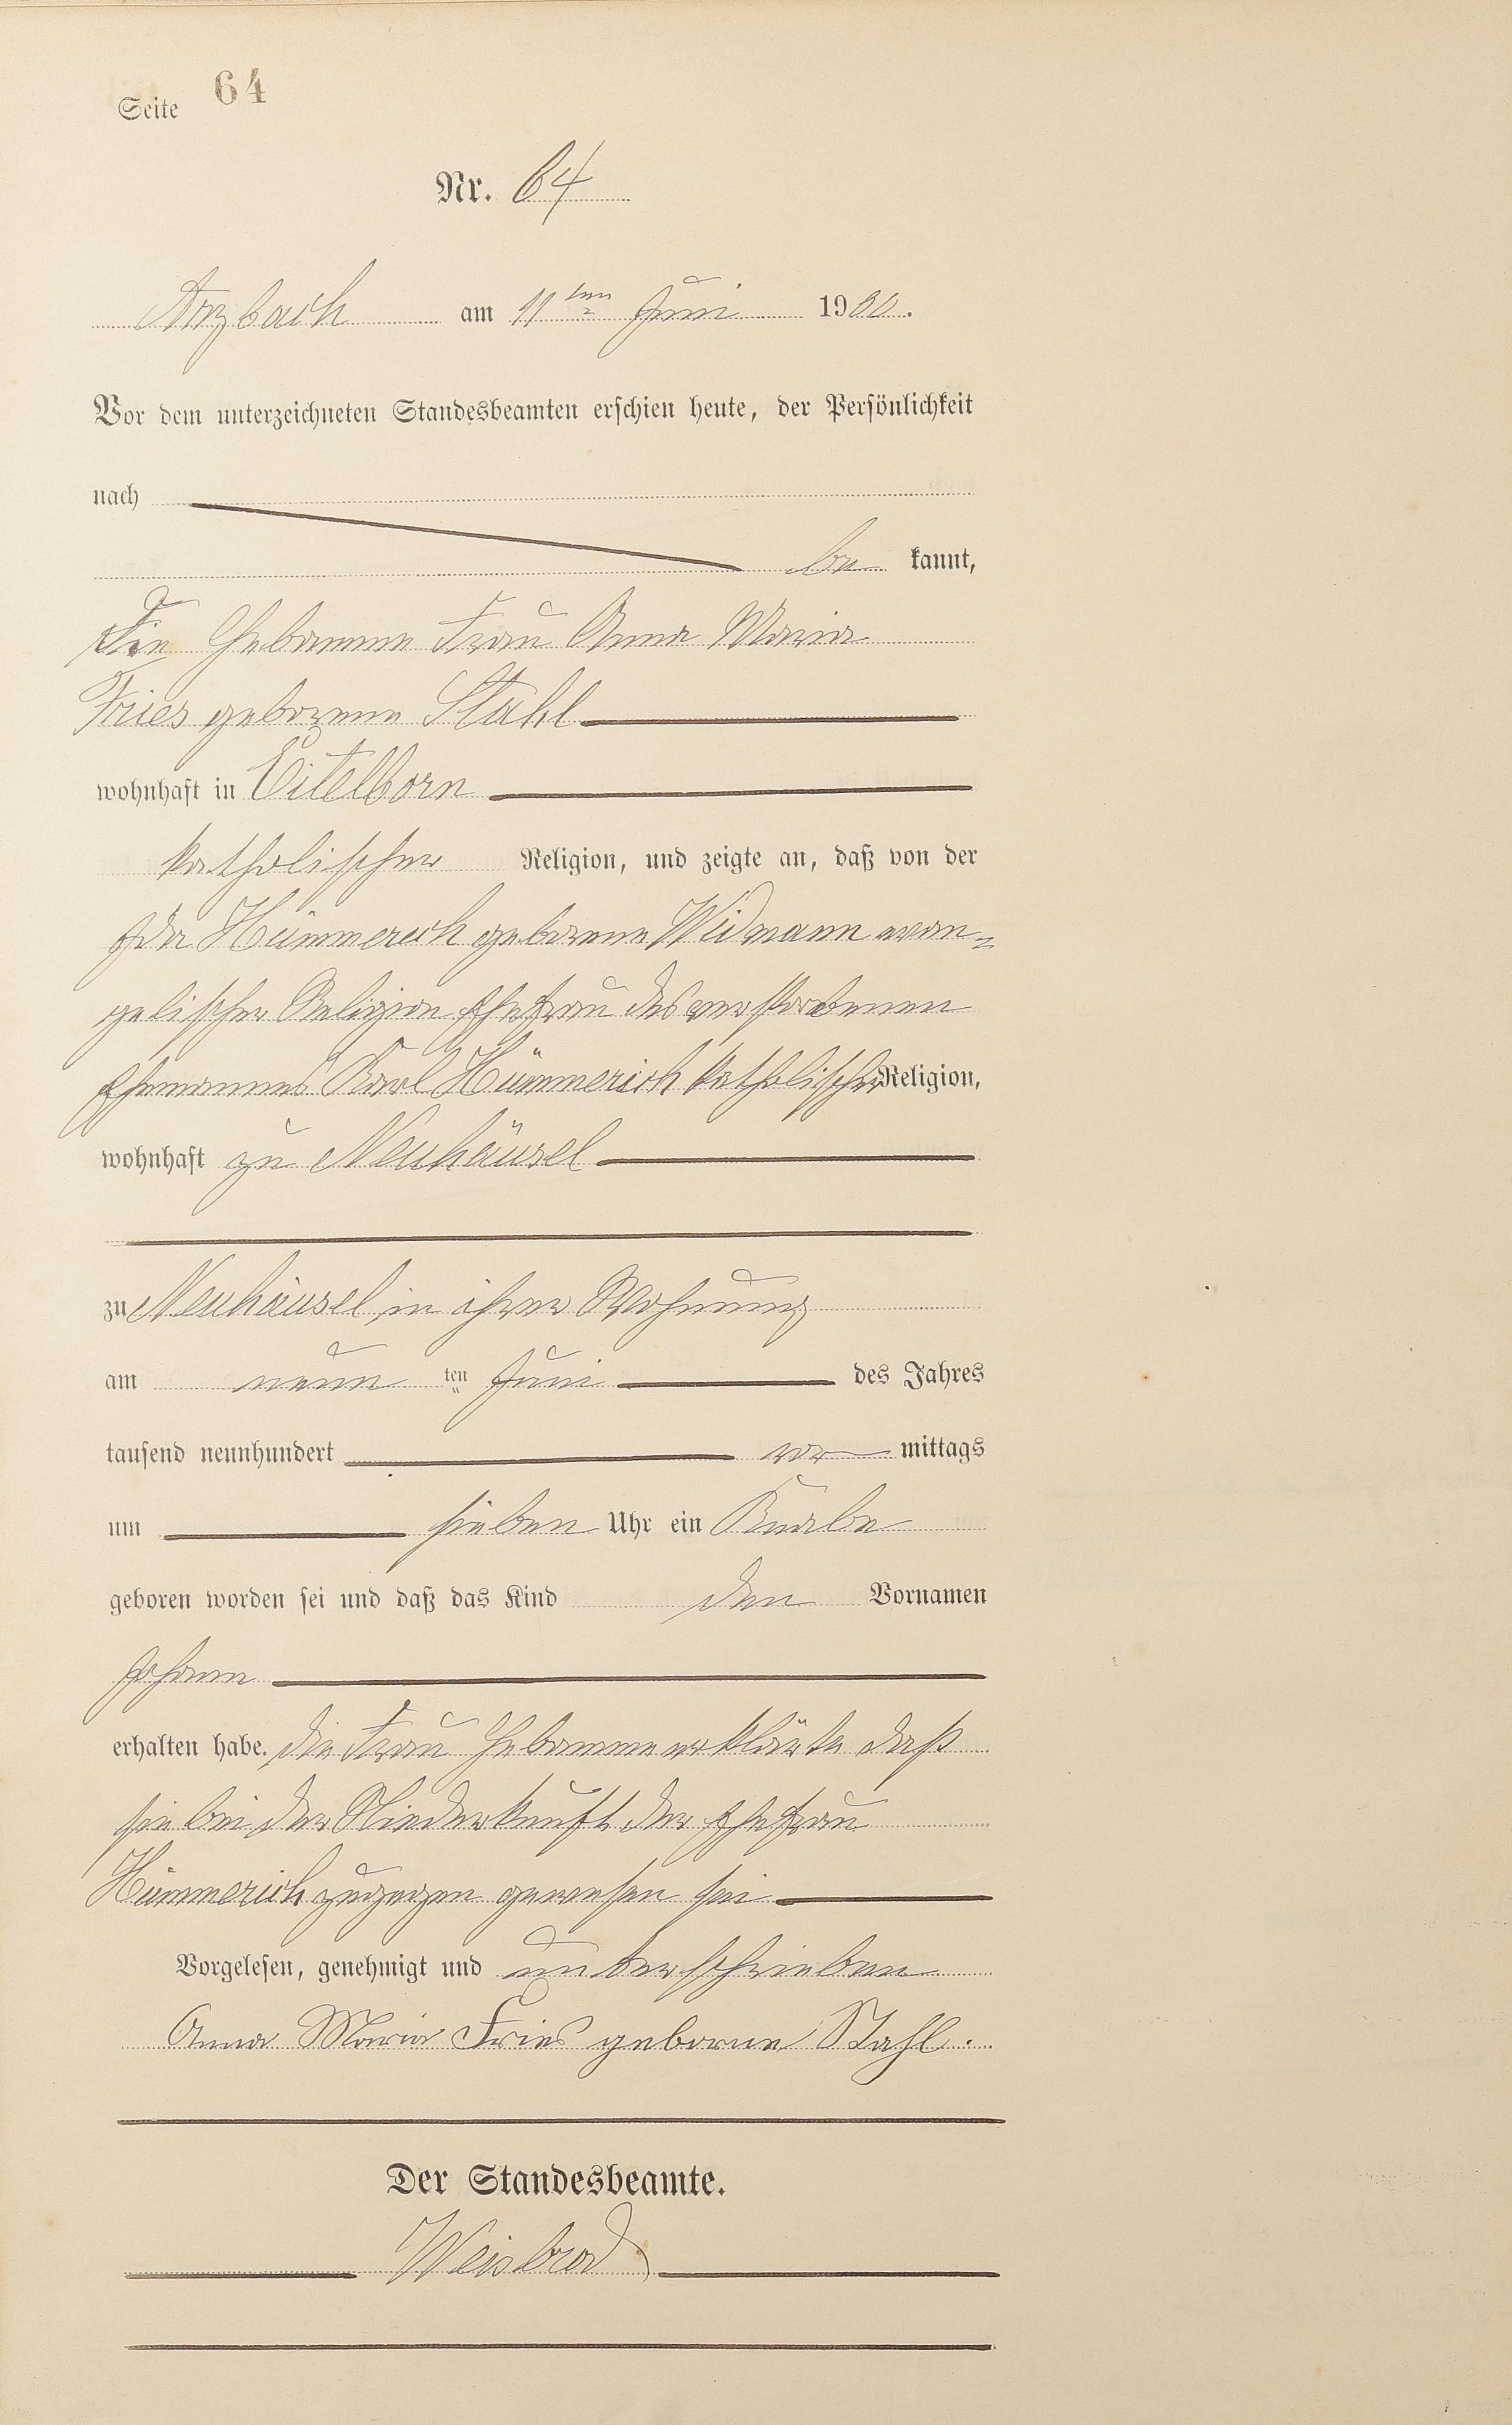 Seite 64
Nr. 64
Arzbach am 11ten Juni 1900.
Vor dem unterzeichneten Standesbeamten erschien heute, der Persönlichkeit
nach
be kannt,
Die Hebamme Frau Anna Maria
Fries geborene Stahl
wohnhaft in Eitelborn
katholischer Religion, und zeigte an, daß von der
Ida Hümmerich geborene Widmann evan-
gelischer Religion Ehefrau des verstorbenen
Ehemannes Karl Hümmerich katholischer Religion,
wohnhaft zu Neuhäusel
zu Neuhäusel in ihrer Wohnung
am neun ten Juni des Jahres
tausend neunhundert vor mittags
um sieben Uhr ein Knabe
geboren worden sei und daß das Kind den Vornamen
Johann
erhalten habe. die Frau Hebamme erklärte daß
sie bei der Niederkunft der Ehefrau
Hümmerich zugegen gewesen sei
Vorgelesen, genehmigt und unterschrieben
Anna Maria Fries geborne Stahl.
Der Standesbeamte.
Weisbrod